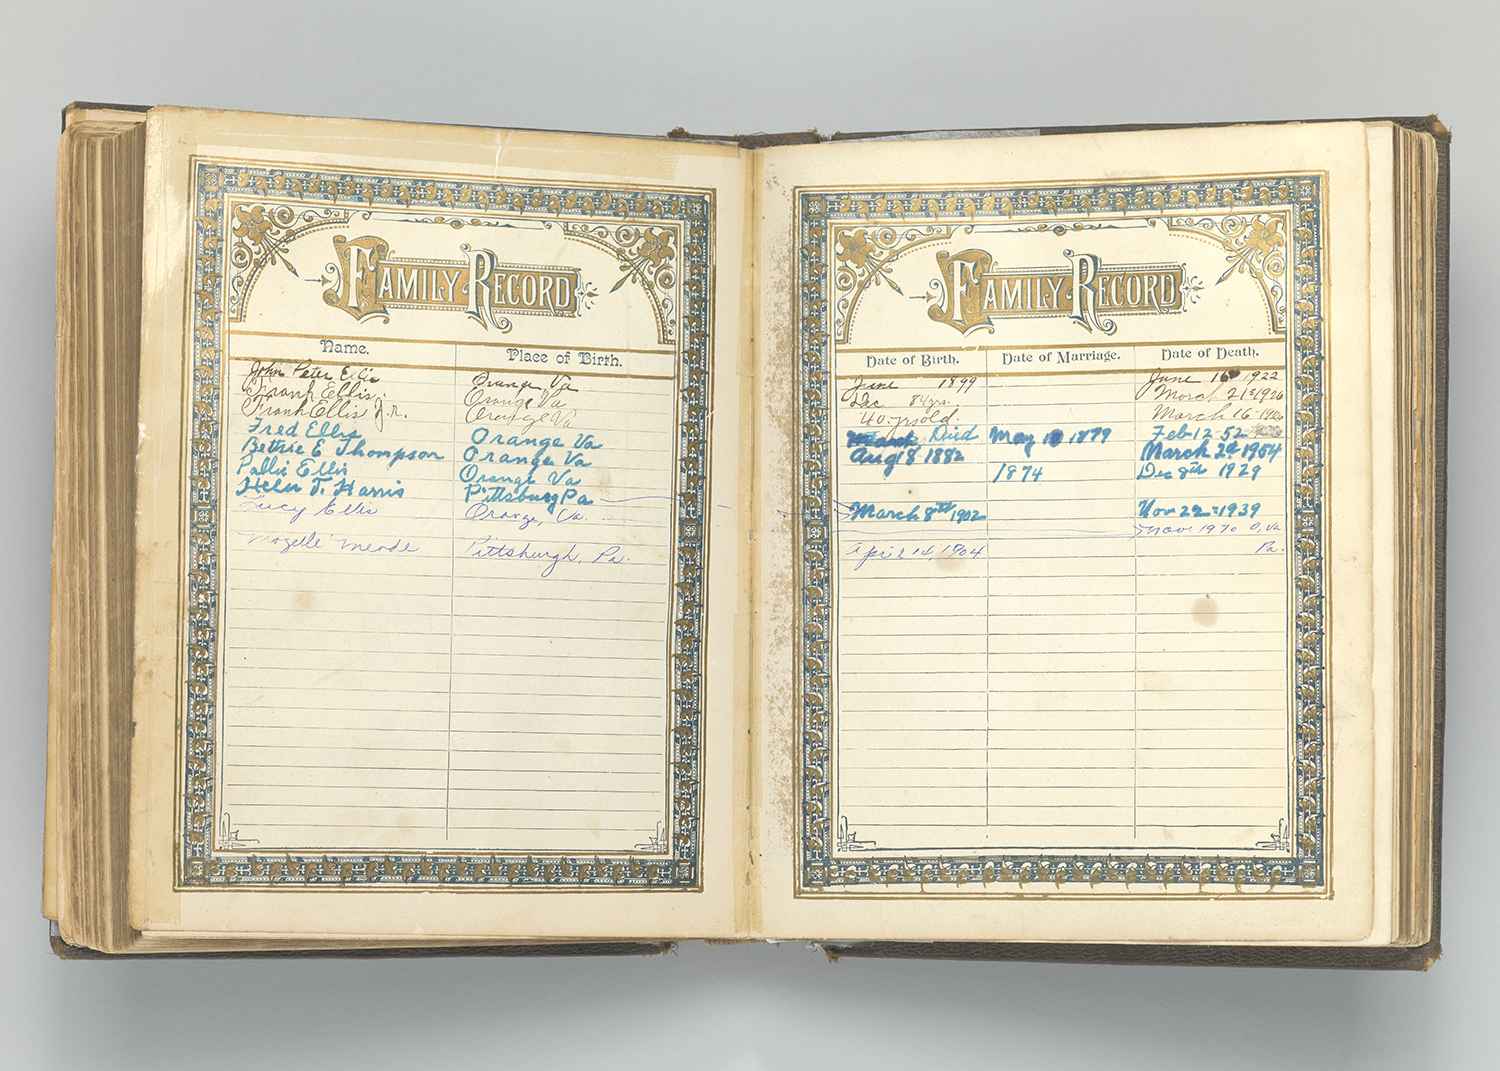 FAMILY RECORD
Name. Place of Birth.
John Peter Ellis Orange, Va
Frank Ellis. Orange Va
Frank Ellis Jr. Orange Va
Fred Ellis Orange Va
Bettrie E Thompson Orange Va
Pallie Ellis Orange Va
Helen T. Harris Pittsburg Pa
Lucy Ellis Orange, Va.
Mozelle Meade Pittsburgh, Pa.
FAMILY RECORD
Date of Birth. Date of Marriage. Date of Death.
June 1899 June 16 1922
Dec 84 yrs. March 21st 1926
40-yrs old March 16-
Died May 1879 Feb-12-52
Aug 8 1882 March 1954
1874 Dec 8th 1929
March 8th 1902 Nov 22-1939
Nov. 1970 O, Va
April 14, 1904 Pa.